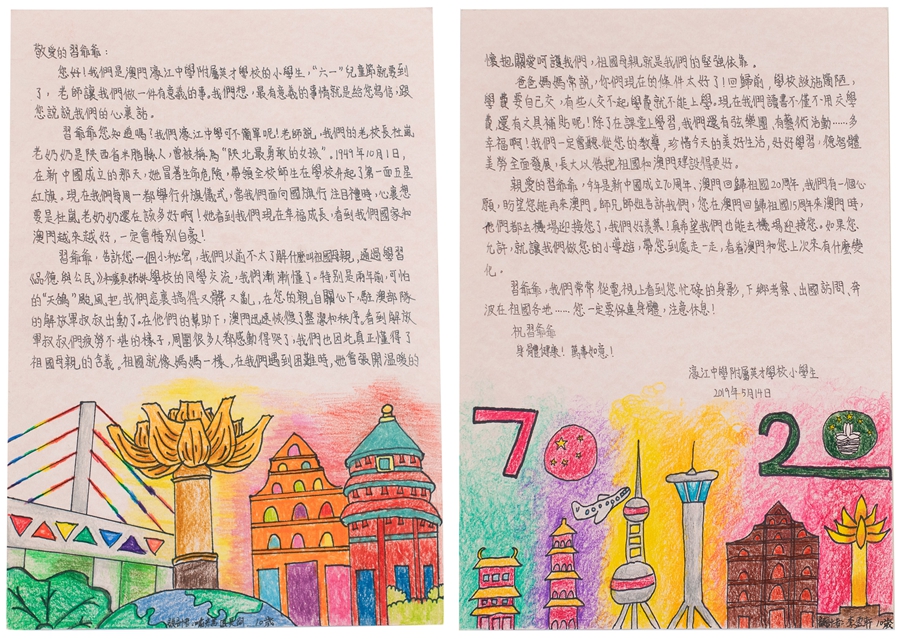 敬愛的習爺爺：
您好！我們是澳門濠江中學附屬英才學校的小學生，“六一”兒童節就要到
了，老師讓我們做一件有意義的事。我們想，最有意義的事情就是給您寫信，跟
您說說我們的心裏話。
習爺爺您知道嗎？我們濠江中學可不簡單呢！老師說，我們的老校長杜嵐
老奶奶是陝西省米脂縣人，曾被稱為“陝北最勇敢的女孩”。1949年10月1日，
在新中國成立的那天，她冒著生命危險，帶領全校師生在學校升起了第一面五星
紅旗。現在我們每周一都舉行升旗儀式，當我們面向國旗行注目禮時，心裏想
要是杜嵐老奶奶還在該多好啊！她看到我們現在幸福成長，看到我們國家和
澳門越來越好，一定會特別自豪！
習爺爺，告訴您一個小秘密，我們以前不太了解什麼叫祖國母親，通過學習
《品德與公民》和學校的同學交流，我們漸漸懂了。特別是兩年前，可怕
的“天鴿”颱風把我們這裏搞得又髒又亂，在您的親自關心下，駐澳部隊
的解放軍叔叔出動了。在他們的幫助下，澳門迅速恢復了整潔和秩序。看到解放
軍叔叔們疲勞不堪的樣子，周圍很多人都感動得哭了，我們也因此真正懂得了
祖國母親的含義。祖國就像媽媽一樣，在我們遇到困難時，她會張開溫暖的
10歲
懷抱，關愛呵護我們，祖國母親就是我們的堅強依靠。
爸爸媽媽常說，你們現在的條件太好了！回歸前，學校設施簡陋，
學費要自己交，有些人交不起學費就不能上學。現在我們讀書不僅不用交學
費，還有文具補貼呢！除了在課堂上學習，我們還有弦樂團，有藝術活動……多
幸福啊！我們一定會聽從您的教導，珍惜今天的美好生活，好好學習，德智體
美勞全面發展，長大以後把祖國和澳門建設得更好。
親愛的習爺爺，今年是新中國成立70周年、澳門回歸祖國20周年，我們有一個心
願，盼望您能再來澳門。師兄師姐告訴我們，您在澳門回歸祖國15周年來澳門時，
他們都去機場迎接您了，我們好羨慕！真希望我們也能去機場迎接您。如果您
允許，就讓我們做您的小導遊，帶您到處走一走，看看澳門和您上次來有什麼變
化。
習爺爺，我們常常從電視上看到您忙碌的身影，下鄉考察、出國訪問、奔
波在祖國各地……您一定要保重身體，注意休息！
祝習爺爺
身體健康！萬事如意！
濠江中學附屬英才學校小學生
2019年5月14日
70
20
10歲